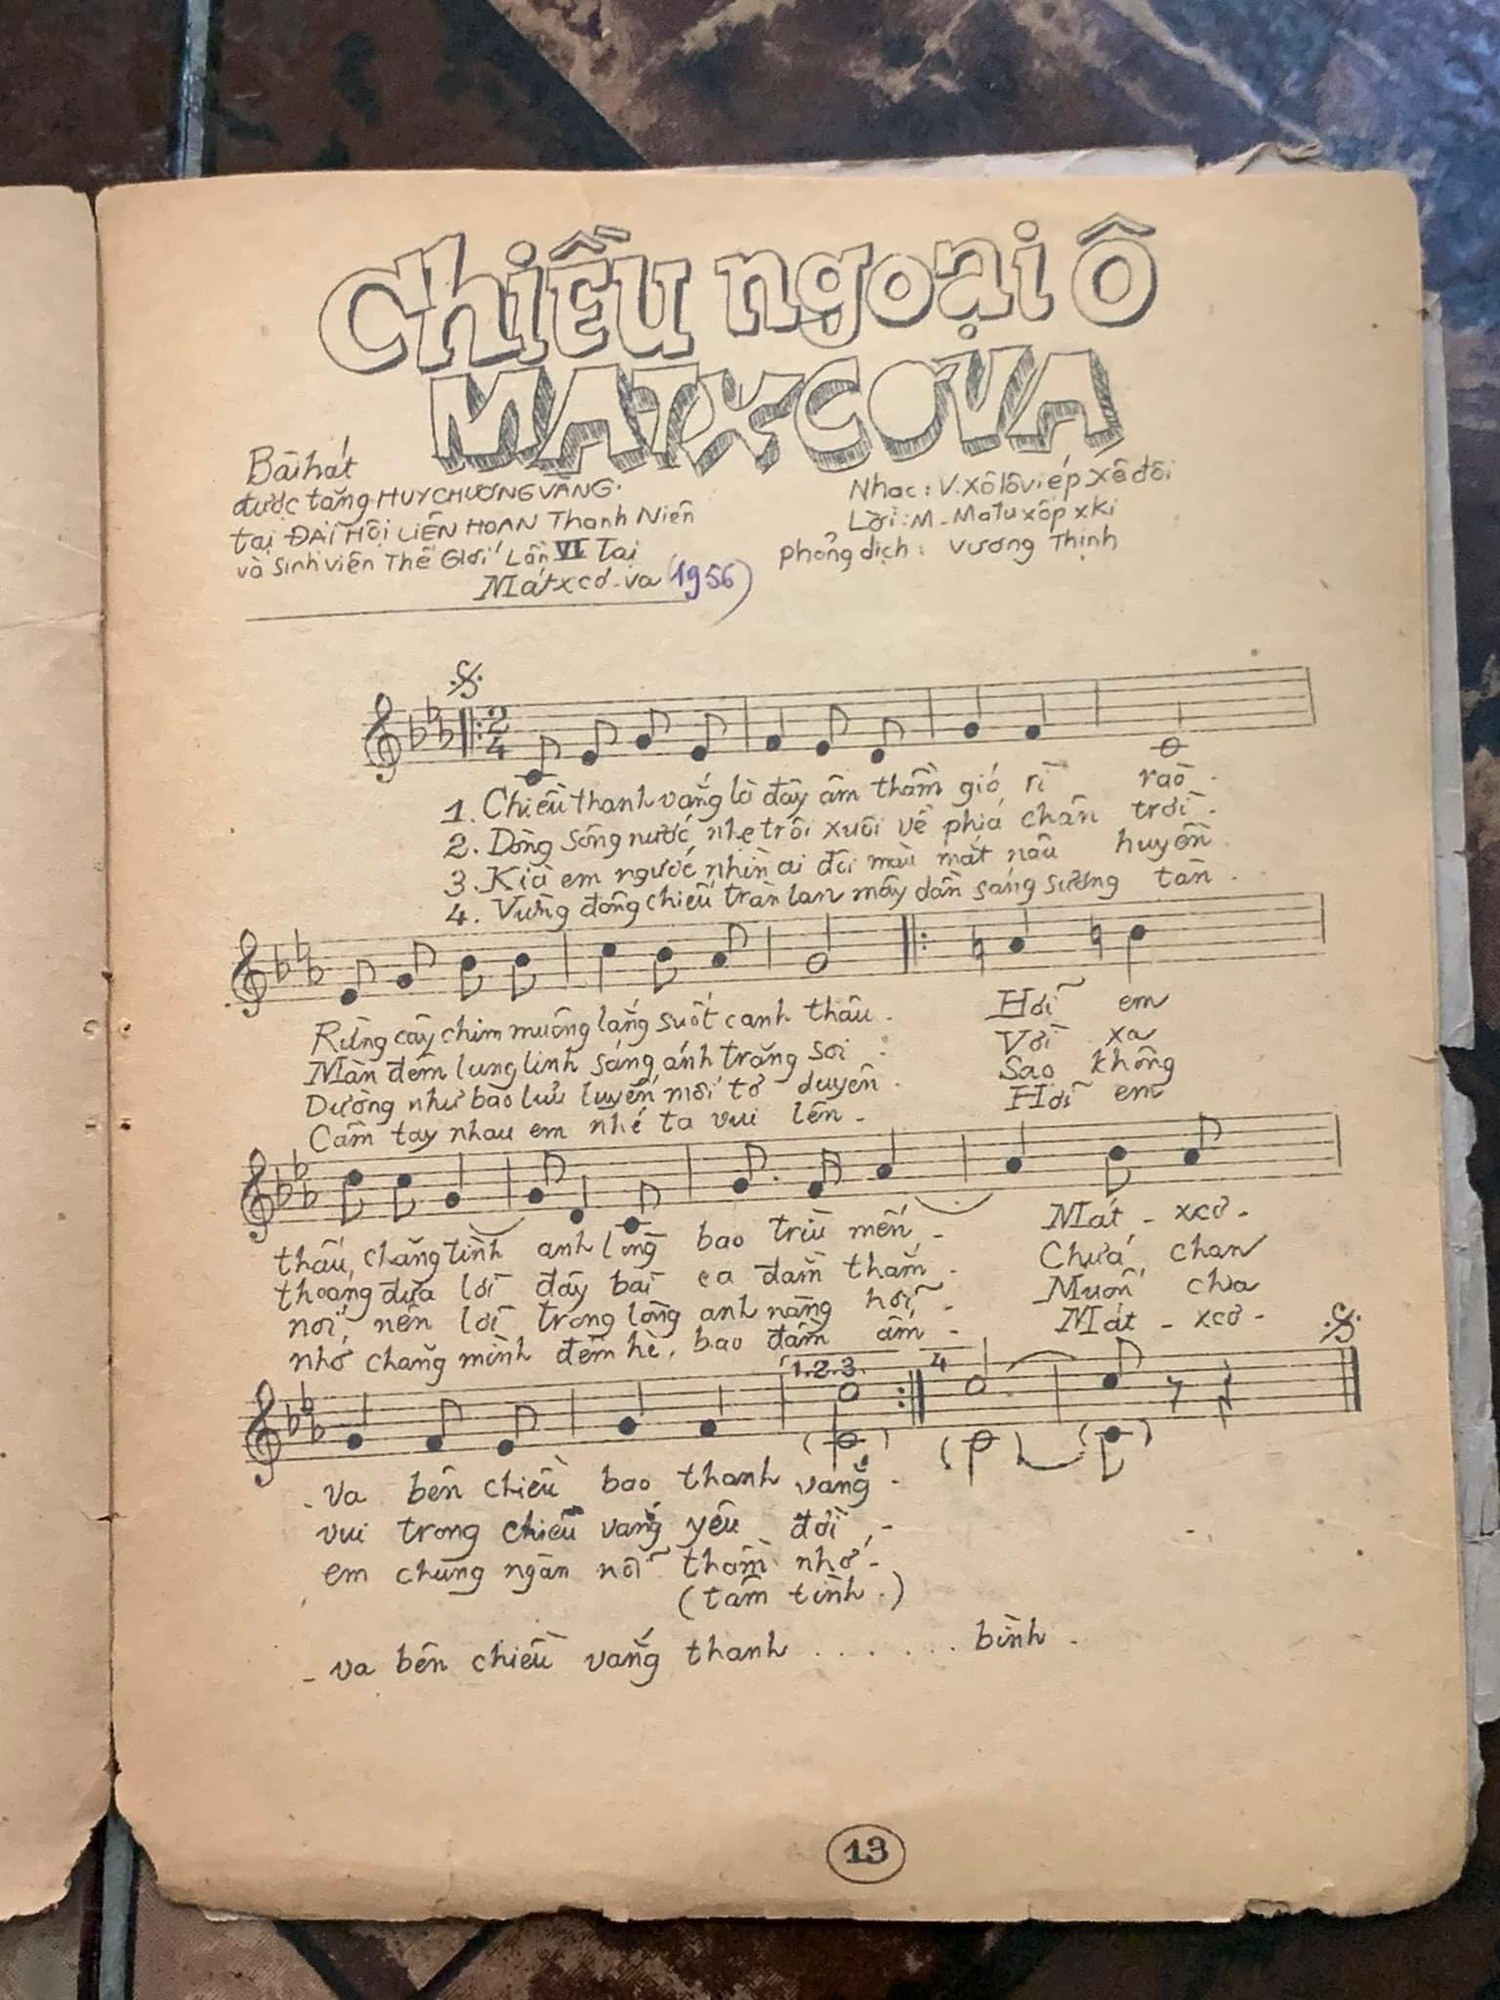 Chiều ngoại ô
MATXCƠVA
Bài hát
được tặng HUY CHƯƠNG VÀNG.
tại ĐẠI HỘI LIÊN HOAN Thanh Niên
và Sinh viên Thế Giới Lần VI Tại
Mátxcơ-va (1956)
Nhạc: V. Xôlôviép Xêđôi
Lời: M-Matuxốpxki
phỏng dịch: Vương Thịnh
2
4
1. Chiều thanh vắng là đây âm thầm gió rì rào.
2. Dòng sông nước nhẹ trôi xuôi về phía chân trời.
3. Kìa em ngước nhìn ai đôi màu mắt nâu huyền.
4. Vừng đông chiếu tràn lan mây dần sáng sương tàn.
Rừng cây chim muông lắng suốt canh thâu. Hỡi em
Màn đêm lung linh sáng ánh trăng soi. Vời xa
Dường như bao lưu luyến mối tơ duyên. Sao không
Cầm tay nhau em nhé ta vui lên. Hỡi em
thấu, chăng tình anh lòng bao trìu mến, Mát-xcơ-
thoáng đưa lời đây bài ca đằm thắm. Chứa chan
nói, nên lời trong lòng anh nàng hỡi, Muốn cha
nhớ chăng mình đêm hè, bao đầm ấm - Mát-xcơ-
1.2.3. 4
-va bên chiều bao thanh vắng.
vui trong chiều vắng yêu đời,-
em chung ngàn nỗi thầm nhớ-
(tâm tình.)
-va bên chiều vắng thanh ....... bình.
13